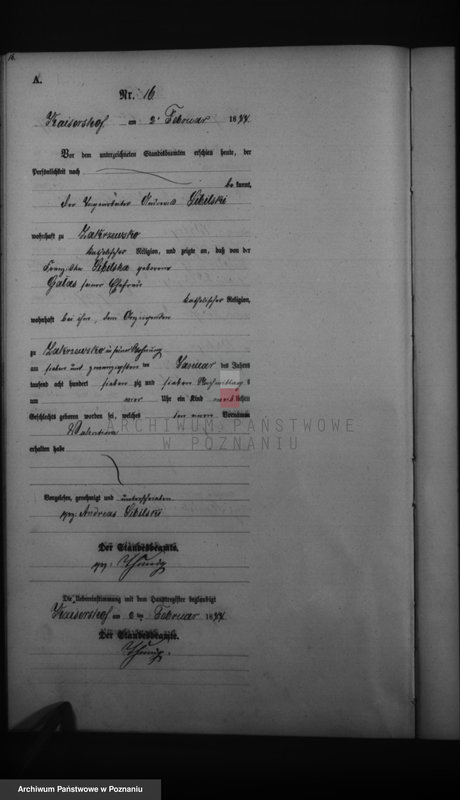 16.
A.
Nr. 16
Kaisershof am 2. Februar 1877
Vor dem unterzeichneten Standesbeamten erschien heute, der
Persönlichkeit nach
be kannt,
der Andreas Sibilski
wohnhaft zu Zakrzewsko
katholischer Religion, und zeigte an, daß von der
Sibilska geborene
Galas seiner Ehefrau
katholischer Religion,
wohnhaft bei ihm, dem Anzeigenden
zu Zakrzewsko in seiner Wohnung
am sieben und zwanzigsten ten Januar des Jahres
tausend acht hundert sieben zig und sieben Nachmittags
um vier Uhr ein Kind weiblichen
Geschlechts geboren worden sei, welches den Vornamen
Valentina
erhalten habe
Vorgelesen, genehmigt und unterschrieben
gez: Andreas Sibilski
Der Standesbeamte.
gez:
Die Uebereinstimmung mit dem Hauptregister beglaubigt
Kaisershof am 2 ten Februar 1877
Der Standesbeamte.
ARCHIWUM PAŃSTWOWE
W POZNANIU
Archiwum Państwowe w Poznaniu